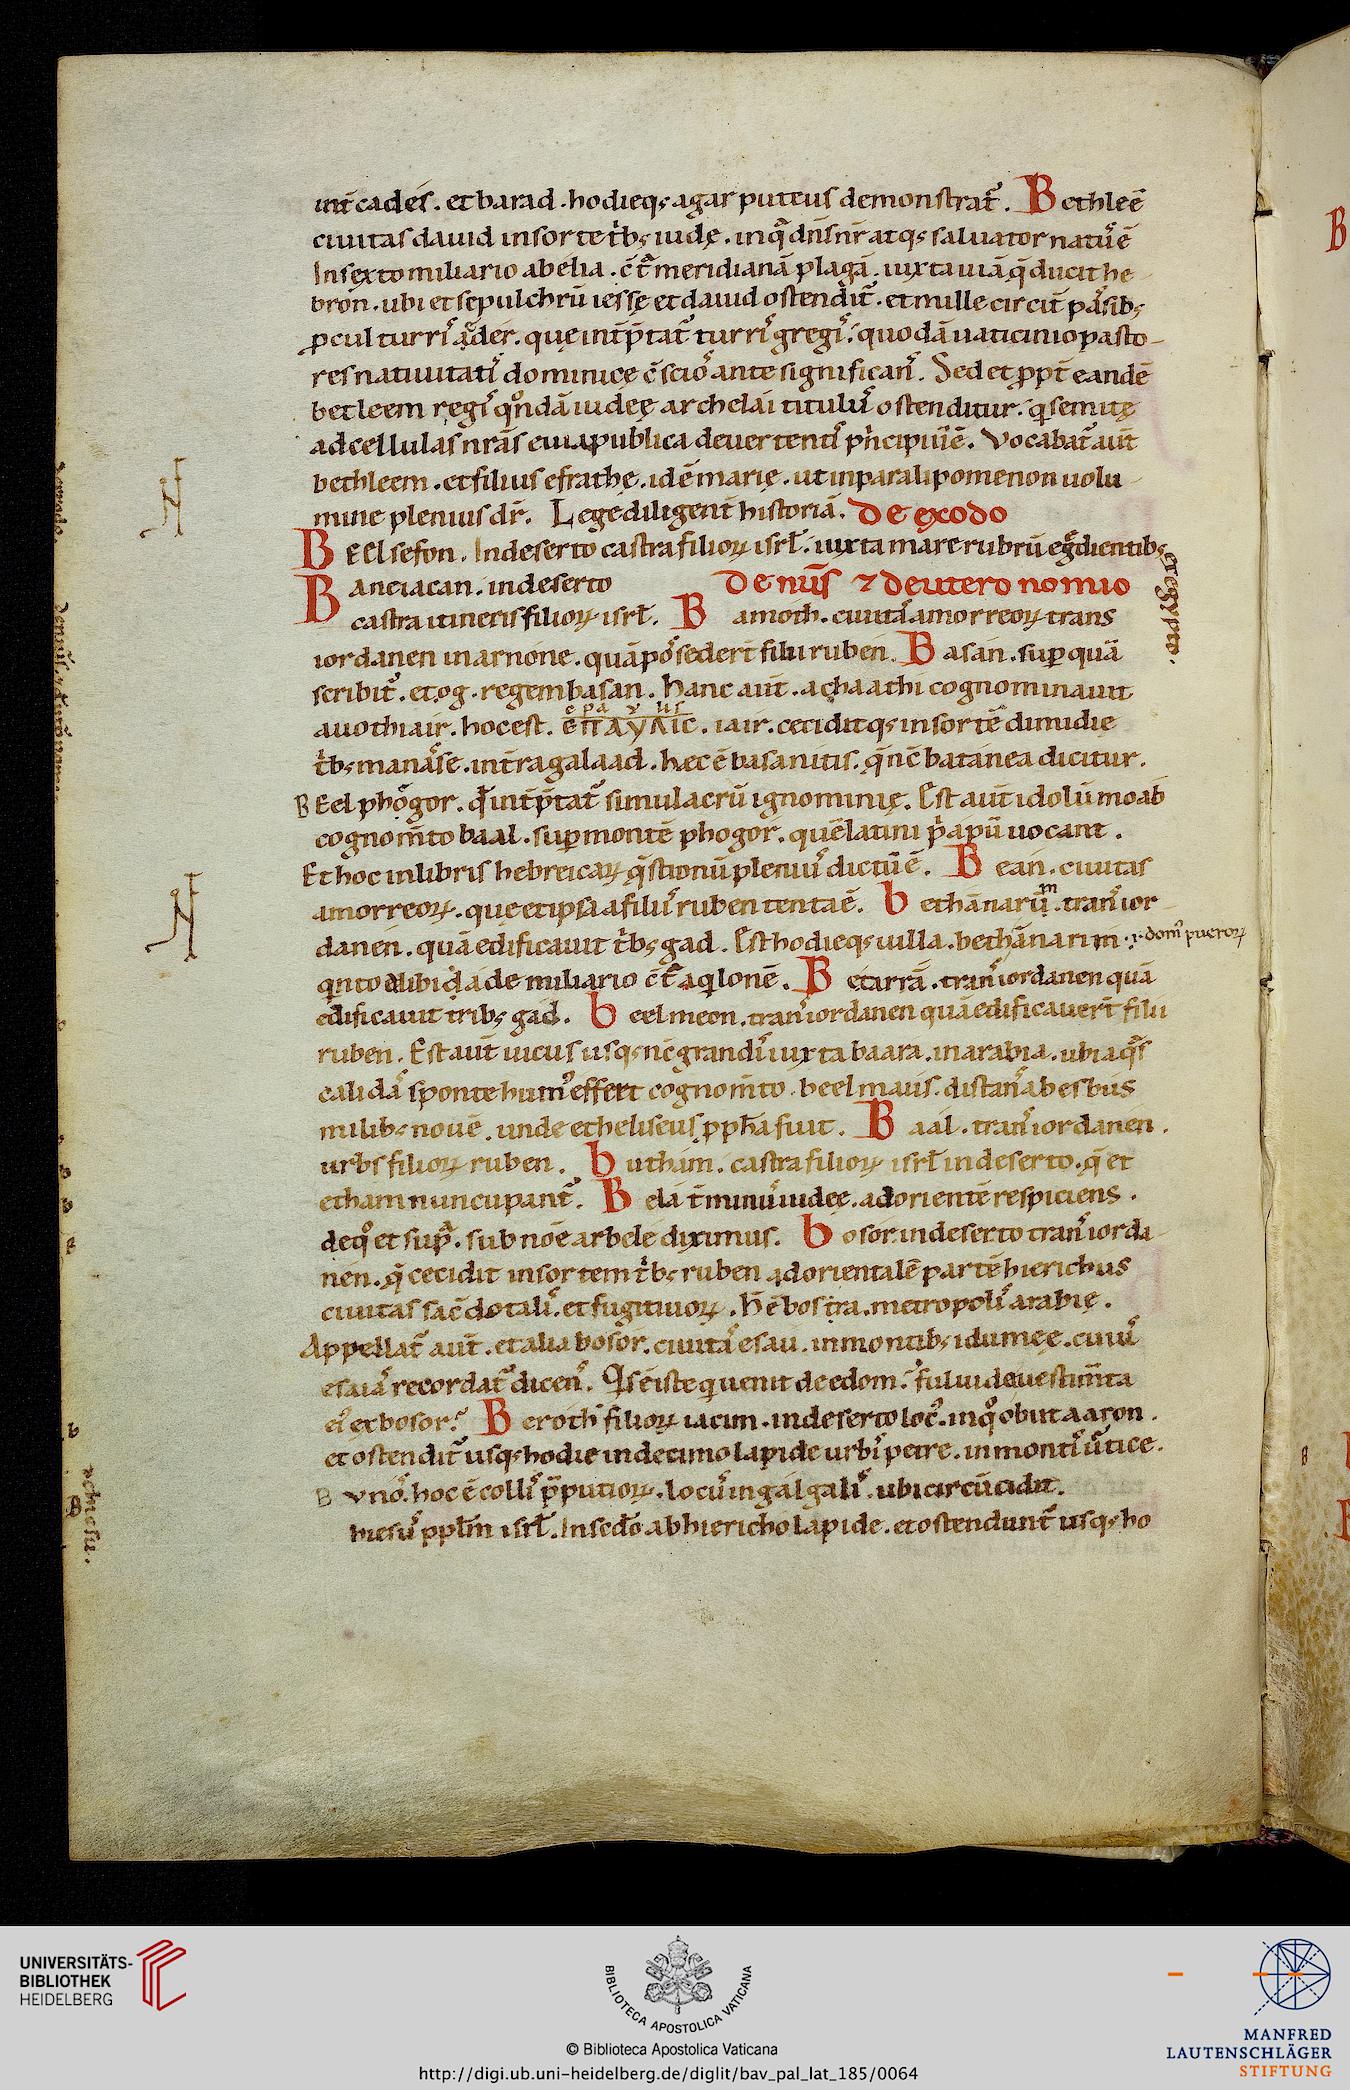 int cades. et barad. hodieq; agar puteus demonstrat᷑. Bethleē
ciuitas dauid in sorte tͥb; iudę. in qͣ dn̄s nr̄ atq; saluator natuˢ ē
In sexto miliario abelia. ct̄ͣ meridianā plagā. iuxta uiā q̄ ducit he
bron. ubi et sepulchrū iessę et dauid ostendit᷑. et mille circit̄ pasˢib;
ꝓcul turrˢ ąder. que intp̄tat᷑ turrˢ gregˢ. quodā uaticinio pasto-
res natiuitatˢ dominicę c̄scioˢ ante significanˢ. Sed et ꝓpt̄ eandē
betleem regˢ qͦndā iudeę archelai tituluˢ ostenditur. q semitę
ad cellulas nr̄as e uia publica deuertentˢ pͥncipiuˢ ē. Vocabat᷑ aut̄
bethleem. et filius efrathę. idē marię. ut in paralipomenon uolu-
mine plenius dr̄. Lege diligent̄ historiā. De exodo
BEElsefon. In deserto castra filioꝝ isrl̄. iuxta mare rubrū egͣdientib;
ex egypto.
Banciacan. in deserto De nūs ⁊ deuteronomio
castra itineris filioꝝ isrl̄. Bamoth. ciuitaˢ amorreoꝝ trans
iordanen in arnone. quā poˢsedert̄ filii ruben. Basan. suꝑ quā
scribit᷑. et og. regem basan. hanc aut̄. achaathi cognominauit
epa v lis
auothiair. hoc est. επαυλις. iair. ceciditq; in sortē dimidię
tͥb; manasˢe. int̄ra galaad. hec ē basanitis. q̄ nc̄ batanea dicitur.
BEel phogor. qͥ intp̄tat᷑ simulacrū ignominię. Est aut̄ idolū moab
cognom̄to baal. suꝑ montē phogor. quē latini pͥapū uocant.
Et hoc in libris hebreicaꝝ q̄stionū pleniuˢ dictū ē. Bean. ciuitas
amorreoꝝ. que et ipsa a filiiˢ ruben tentaē. bethānarūm. tranˢ ior-
danen. quā edificauit tͥb; gad. Est hodieq; uilla. bethānarim. i. domˢ pueroꝝ
qnto a libiąde miliario ct̄ͣ aqlonē. Betarrā. tranˢ iordanen quā
edificauit trib; gad. beelmeon. tranˢ iordanen quā edificauert̄ filii
ruben. Est aut̄ uicus usq; nc̄ grandˢ iuxta baara. in arabia. ubi aqͣs
calidaˢ sponte humˢ effert cognom̄to. beelmaus. distanˢ ab esbus
milib; nouē. unde et heliseus ꝓpha fuit. Baal. tranˢ iordanen.
urbs filioꝝ ruben. butham. castra filioꝝ isrl̄ in deserto. q̄ et
etham nuncupant᷑. Bela t̄minuˢ iudeę. ad orientē respiciens.
de qͦ et supͣ. sub noē arbele diximus. bosor. in deserto tranˢ iorda-
nen. q̄ cecidit in sortem tͥb; ruben ad orientalē partē hierichus
ciuitas sac̄dotaliˢ. et fugitiuoꝝ. h̄ ē bostra. metropoliˢ arabię.
Appellat᷑ aut̄. et alia bosor. ciuitaˢ esau. in montib; idumeę. cuiuˢ
esaiaˢ recordat᷑ dicenˢ. Qˢ ē iste q uenit de edom. fului da uestim̄ta
eiˢ ex bosor. Beroth filioꝝ iacim. in deserto locˢ. in qͦ obiit aaron.
et ostendit᷑ usq; hodie in decimo lapide urbiˢ petre. in montiˢ ūtice.
B vnoˢ. hoc ē colliˢ p̄putioꝝ. locuˢ in galgaliˢ. ubi circūcidit.
hiesuˢ ppl̄m isrl̄. In sedo ab hiericho lapide. et ostendunt᷑ usq; ho
UNIVERSITÄTS-
BIBLIOTHEK
HEIDELBERG
BIBLIOTECA APOSTOLICA VATICANA
© Biblioteca Apostolica Vaticana
http://digi.ub.uni-heidelberg.de/diglit/bav_pal_lat_185/0064
MANFRED
LAUTENSCHLÄGER
STIFTUNG